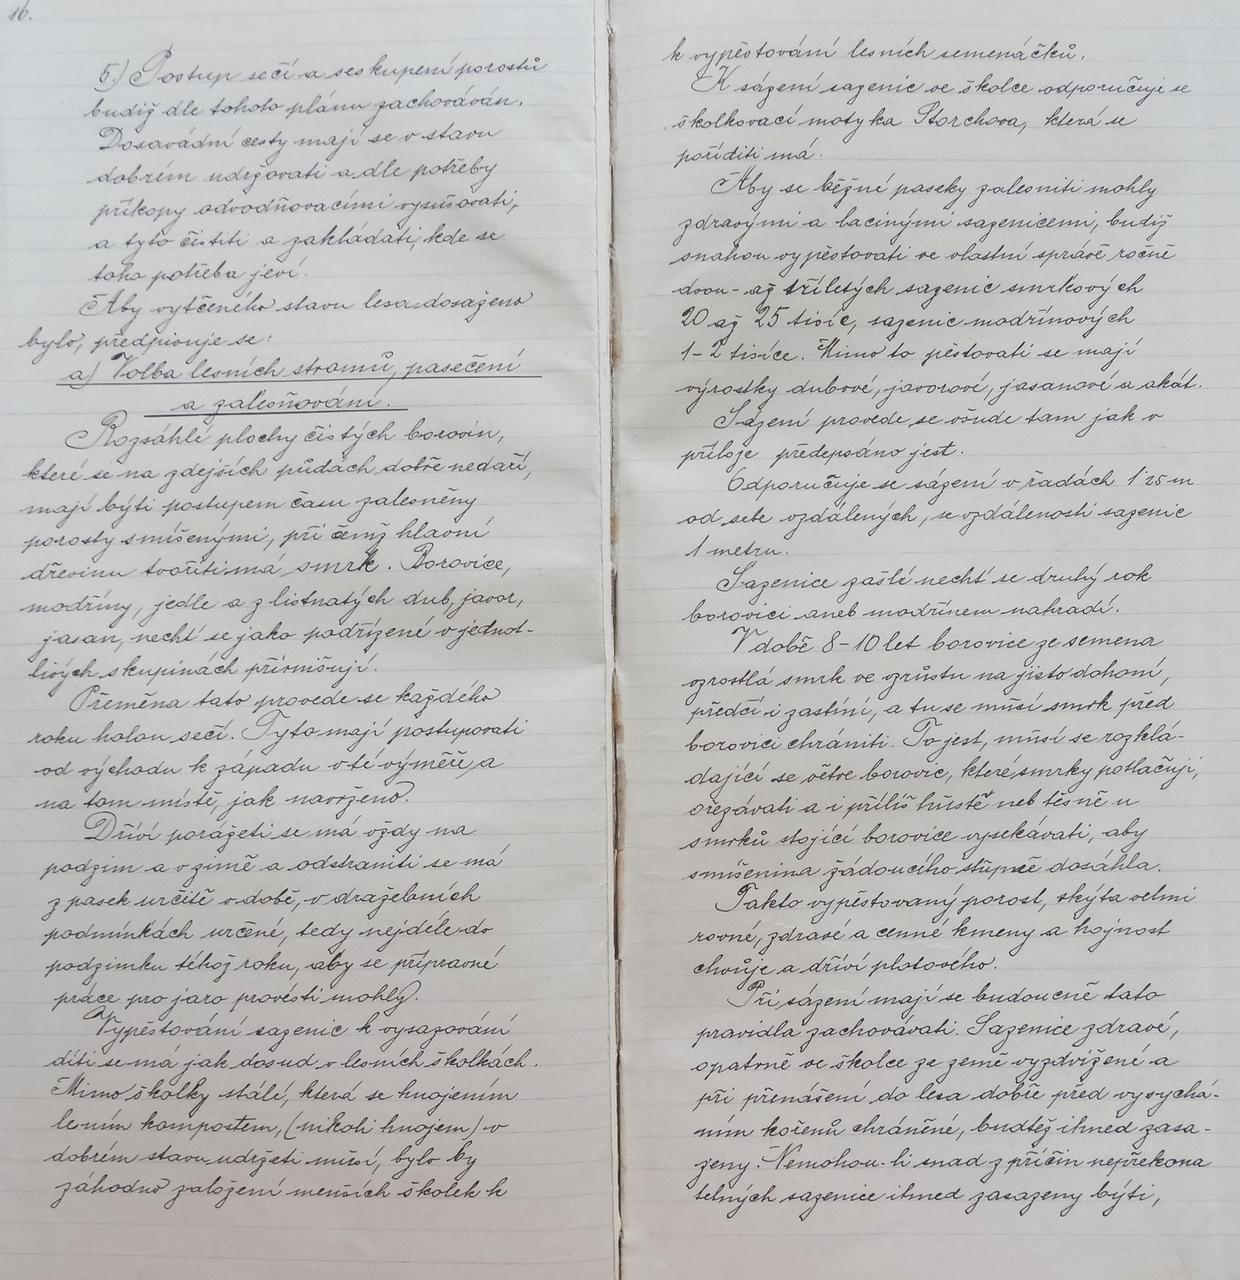 16.
5.) Postup sečí a seskupení porostů
budiž dle tohoto plánu zachováván.
Dosavádní cesty mají se v stavu
dobrém udržovati a dle potřeby
příkopy odvodňovacími vysušovati,
a tyto čistiti a zakládati, kde se
toho potřeba jeví.
Aby vytčeného stavu lesa dosaženo
bylo, předpisuje se:
a) Volba lesních stromů, pasečení
a zalesňování.
Rozsáhlé plochy čistých borovin,
které se na zdejších půdách dobře nedaří,
mají býti postupem času zalesněny
porosty smíšenými, při čemž hlavní
dřevinu tvořiti má smrk. Borovice,
modříny, jedle a z listnatých dub, javor,
jasan, nechť se jako podřízené v jednot-
livých skupinách přimíšují.
Přeměna tato provede se každého
roku holou sečí. Tyto mají postupovati
od východu k západu v té výměře, a
na tom místě, jak navrženo.
Dříví porážeti se má vždy na
podzim a v zimě a odstraniti se má
z pasek určitě v době, v dražebních
podmínkách určené, tedy nejdéle do
podzimku téhož roku, aby se přípravné
práce pro jaro provésti mohly.
Vypěstování sazenic k vysazování
díti se má jak dosud v lesních školkách.
Mimo školky stálé, která se hnojením
lesním kompostem, (nikoli hnojem) v
dobrém stavu udržeti musí, bylo by
záhodno založení menších školek k
k vypěstování lesních semenáčků.
K sázení sazenic ve školce odporučuje se
školkovací motyka Storchova, která se
poříditi má.
Aby se běžné paseky zalesniti mohly
zdravými a lacinými sazenicemi, budiž
snahou vypěstovati ve vlastní správě ročně
dvou- až tříletých sazenic smrkových
20 až 25 tisíc, sazenic modřínových
1-2 tisíce. Mimo to pěstovati se mají
výrostky dubové, javorové, jasanové a akát.
Sázení provede se všude tam jak v
příloje předepsáno jest.
Odporučuje se sázení v řadách 1 25 m
od sebe vzdálených, se vzdáleností sazenic
1 metru.
Sazenice zašlé nechť se druhý rok
borovicí aneb modřínem nahradí.
V době 8-10 let borovice ze semena
vzrostlá smrk ve vzrůstu na jisto dohoní,
předčí i zastíní, a tu se musí smrk před
borovicí chrániti. To jest, musí se rozklá-
dající se větve borovic, které smrky potlačují,
ořezávati a i příliš hustě neb těsně u
smrků stojící borovice vysekávati, aby
smíšenina žádoucího stupně dosáhla.
Takto vypěstovaný porost, skýtá velmi
rovné, zdravé a cenné kmeny a hojnost
chvůje a dříví plotového.
Při sázení mají se budoucně tato
pravidla zachovávati. Sazenice zdravé,
opatrně ve školce ze země vyzdvižené a
při přenášení do lesa dobře před vysychá-
ním kořenů chráněné, buďtež ihned zasa-
zeny. Nemohou-li snad z příčin nepřekona
telných sazenice ihned zasazeny býti,